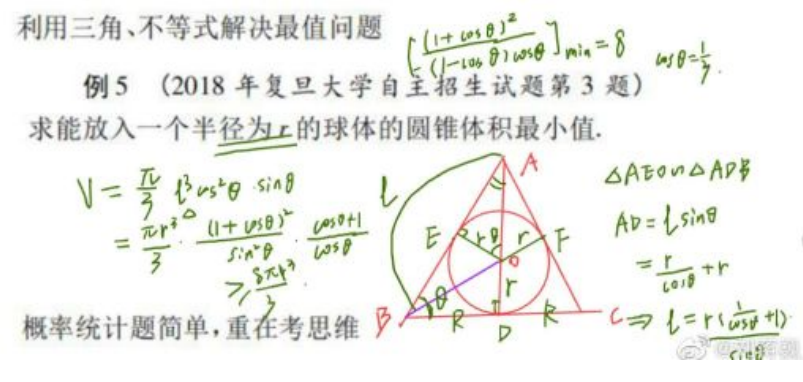 利用三角、不等式解决最值问题
[(1+cosθ)²/(1-cosθ)cosθ]min=8
cosθ=1/3.
例5 (2018年复旦大学自主招生试题第3题)
求能放入一个半径为r的球体的圆锥体积最小值.
V=π/3 l³cos²θ·sinθ
=πr³/3·(1+cosθ)²/sin²θ·cosθ+1/cosθ
≥8πr³/3
l
A
E
r
θ
r
F
O
r
B
θ
R
D
R
C
△AEO∽△ADB
AD=lsinθ
=r/cosθ+r
⇒l=r(1/cosθ+1)/sinθ
概率统计题简单,重在考思维